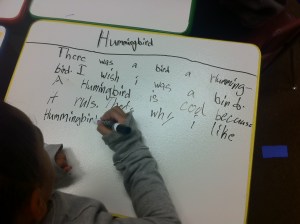 Hummingbird
There was a bird a Humming-
bird. I wish i was a bird.
A Hummingbird is cool because
it ruls. that's why i like
Hummingbirds